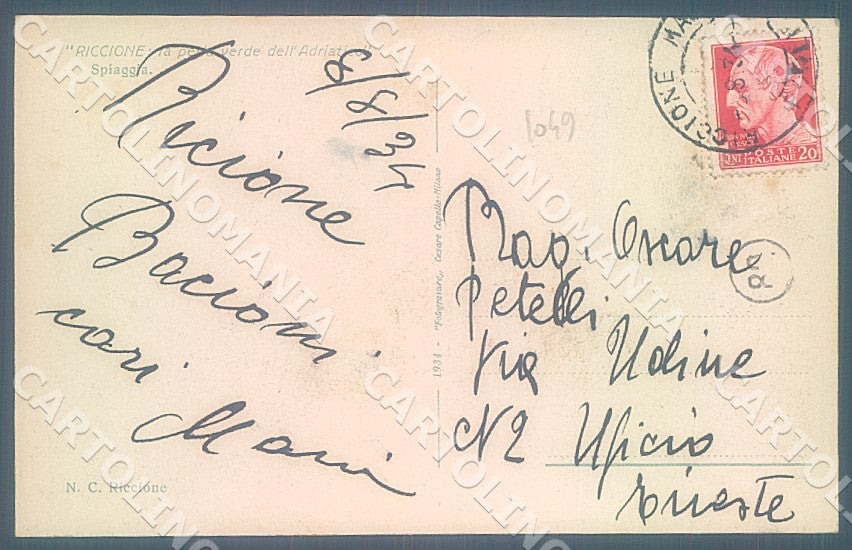 "RICCIONE: la perla verde dell'Adriatico"
Spiaggia.
8/8/34
Riccione
Bacioni
cari
N. C. Riccione
1934 - "Fotogravure" Cesare Capello-Milano
1049
RICCIONE
POSTE
ITALIANE 20
CENT
Rag. Oscare
Petelli
Via Udine
N2 Uficio
Trieste
CARTOLINOMANIA